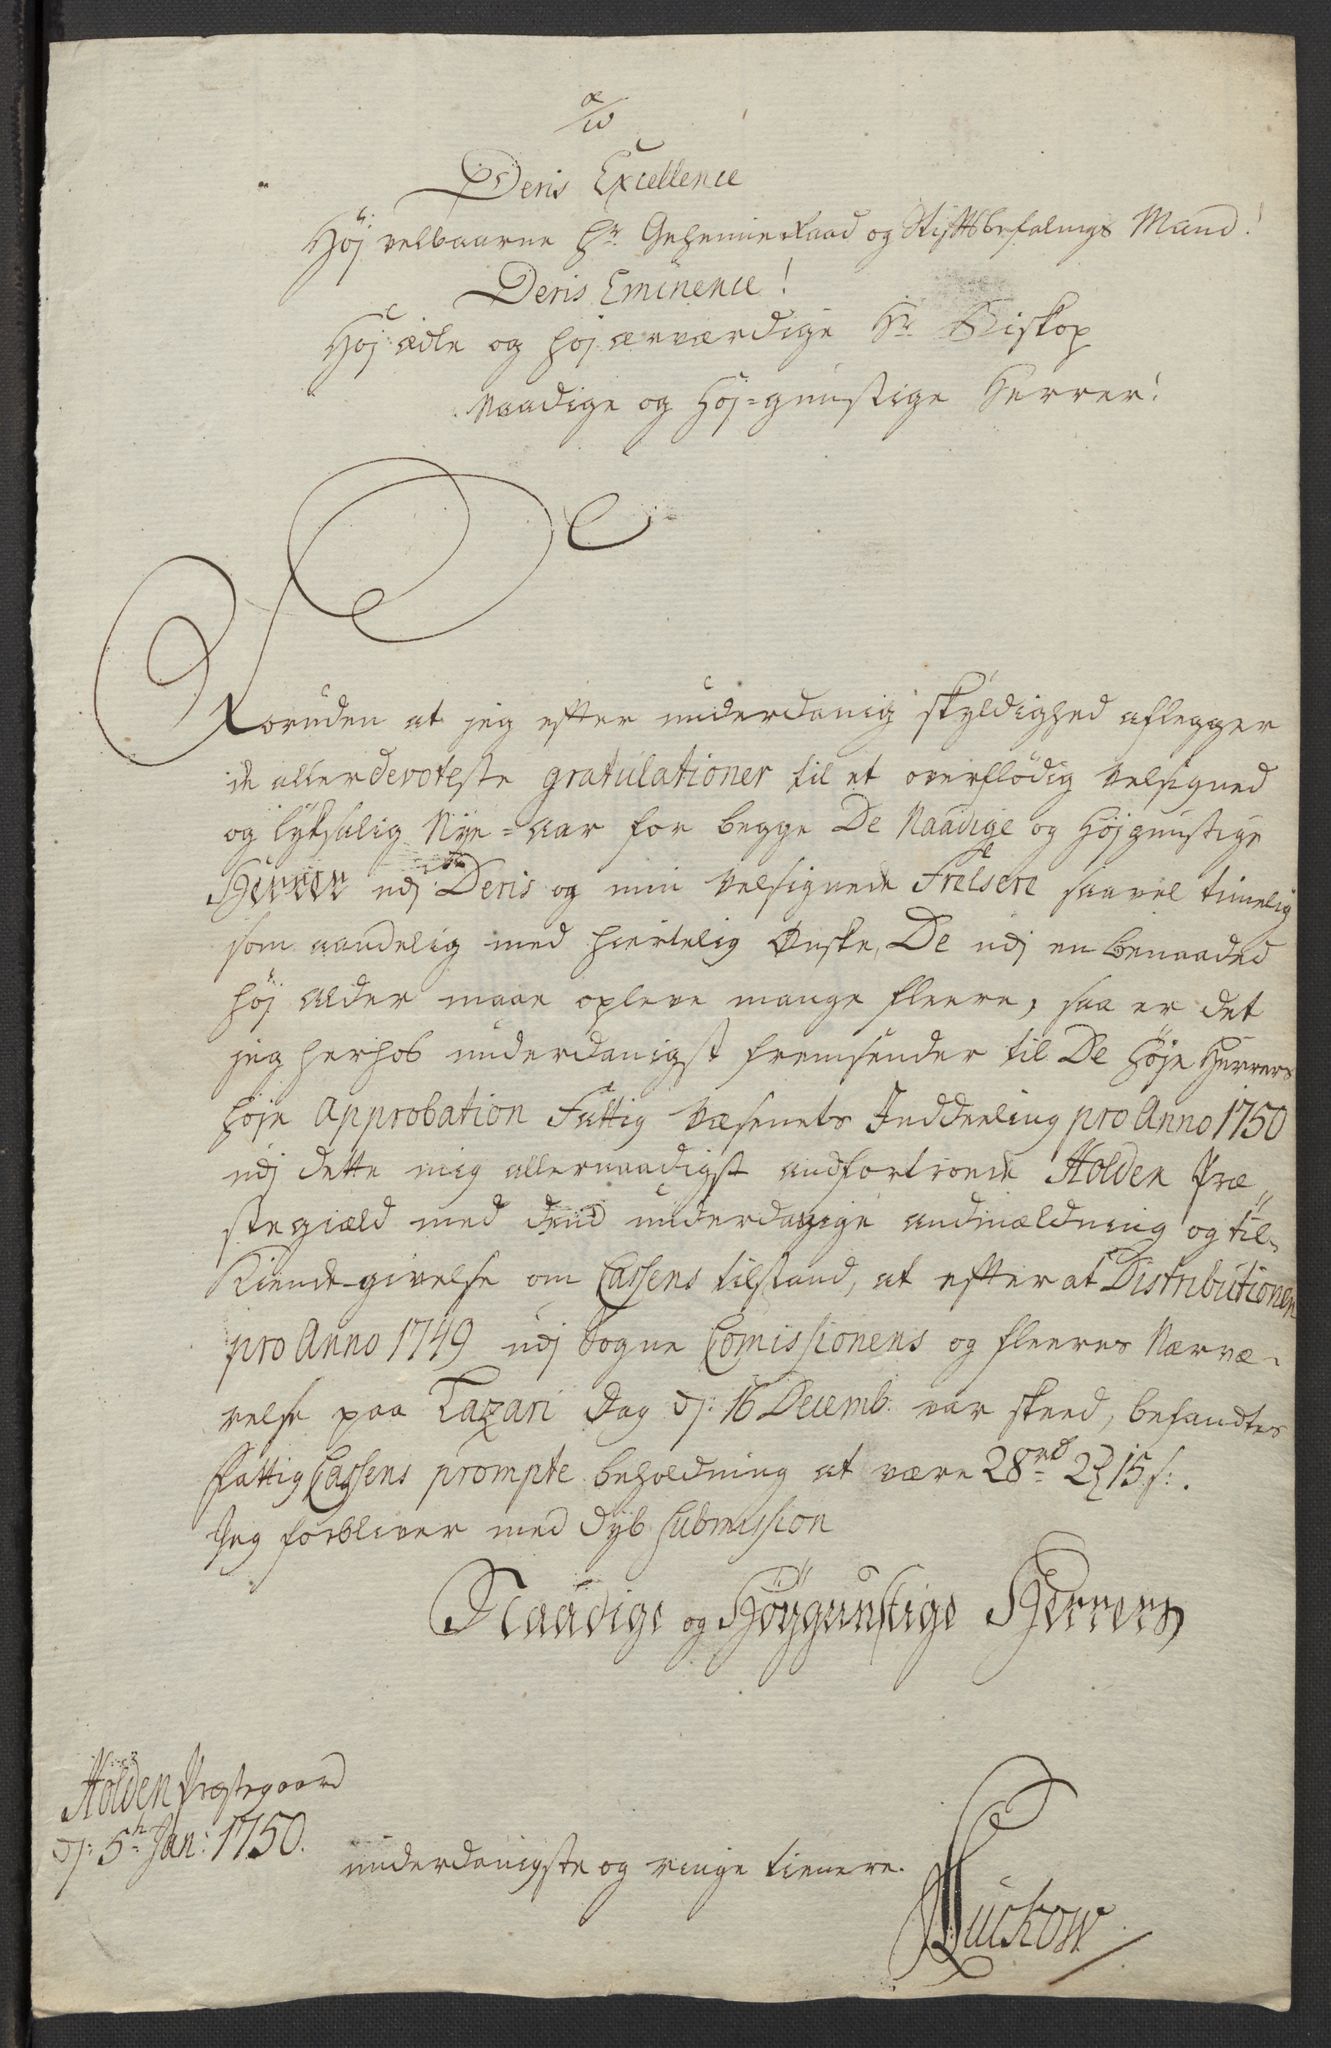 α/ω
Deris Excellence
Høj velbaarne Hr Geheime Raad og Stiftsbefalings Mand!
Deris Eminence!
Høj ædle og høj ærværdige Hr Biskop
Naadige og Høj=gunstige Herrer!
Foruden at jeg efter underdanig skyldighed aflegger
de allerdevoteste gratulationer til et overflödig velsigned
og lyksalig Nye=Aar for begge De Naadige og Højgunstige
Herrer udj Deris og min velsignede Frelsere saavel timelig
som aandelig med hiertelig Ønske, De udj en benaaded
høj alder maae opleve mange fleere, saa er det
jeg herhos underdanigst fremsender til De Høje Herrers
høje Approbation Fattig Væsenets Inddeeling pro Anno 1750
udj dette mig allernaadigst andfortroede Holden Præ
stegiæld med dend underdanige andmældning og til-
Kiende-givelse om Cassens tilstand, at efter at Distributionen
pro Anno 1749 udj Sogne Comissionens og fleeres Nærvæ-
relse paa Lazari Dag d: 16 Decemb. var skeed, befandtes
Fattig Cassens prompte beholdning at være 28 rd 2 15 s:.
Jeg forbliver med dyb submission
Naadige og Höygunstige Herrers
Holden Præstegaard
d: 5th Jan: 1750.
underdanigste og ringe tienere.
Luckow